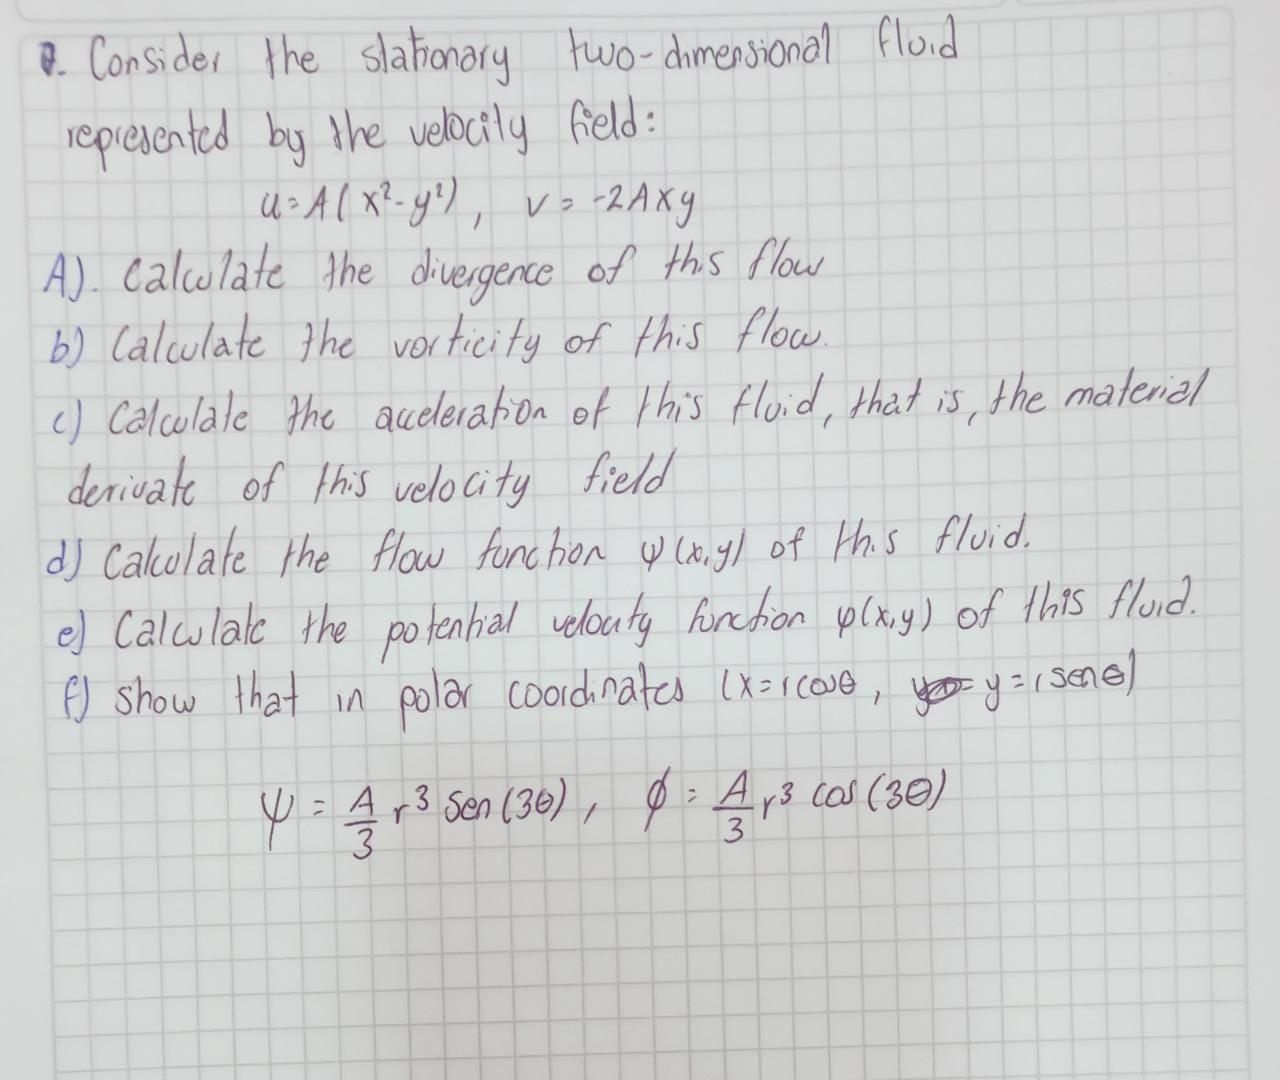 1. Consider the stationary two-dimensional fluid
represented by the velocity field:
u=A(x²-y²), v= -2Axy
A). Calculate the divergence of this flow
b) Calculate the vorticity of this flow.
c) Calculate the acceleration of this fluid, that is, the material
derivate of this velocity field
d) Calculate the flow function ψ(x,y) of this fluid.
e) Calculate the potential velocity function φ(x,y) of this fluid.
f) Show that in polar coordinates (x=rcosθ, y=rsenθ)
ψ = A/3 r³ Sen(3θ), ϕ = A/3 r³ cos(3θ)